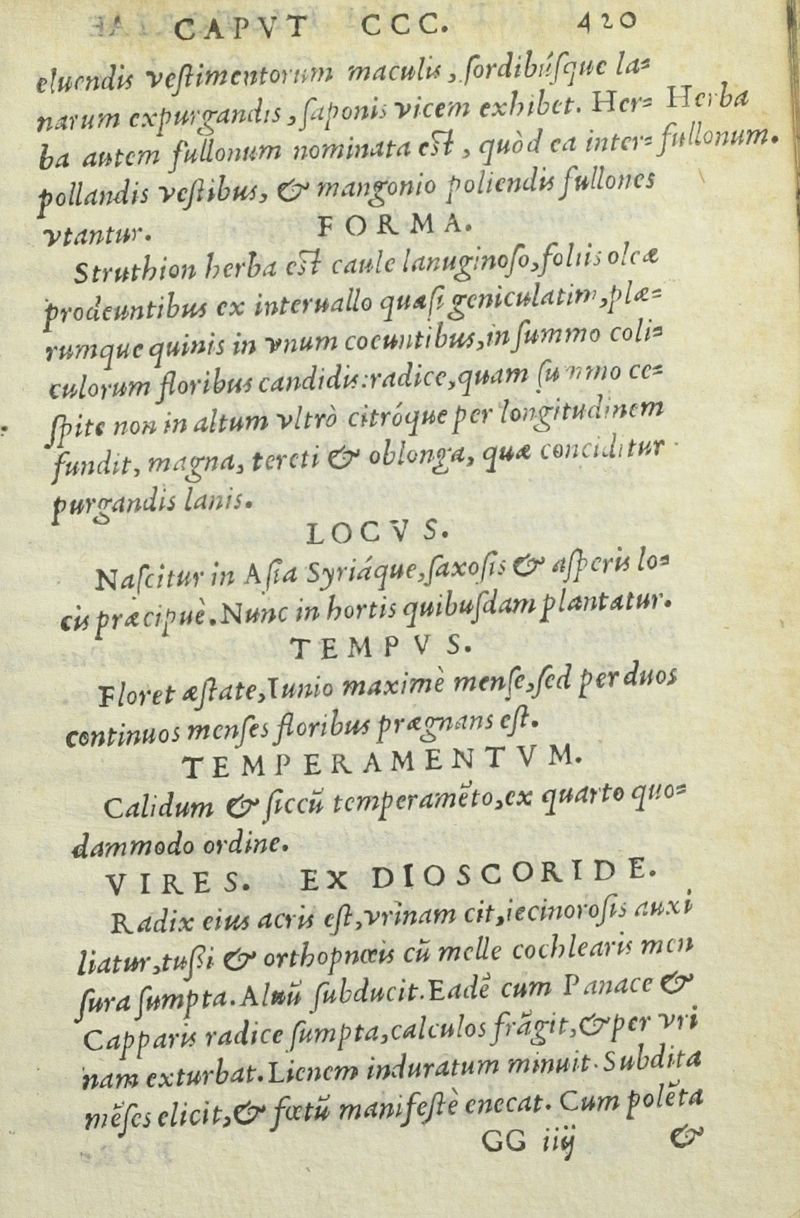 CAPVT CCC. 420
eluendis vestimentorum maculis, sordibúsque la-
narum expurgandis, saponis vicem exhibet. Her- Herba
ba autem fullonum nominata est, quòd ea inter- fullonum.
pollandis vestibus, & mangonio poliendis fullones
vtantur. FORMA.
Struthion herba est caule lanuginoso, foliis oleæ
prodeuntibus ex interuallo quasi geniculatim, plæ-
rumque quinis in vnum coeuntibus, in summo coli-
culorum floribus candidis: radice, quam summo ce-
spite non in altum vltrò citróque per longitudinem
fundit, magna, tereti & oblonga, quæ conciditur
purgandis lanis.
LOCVS.
Nascitur in Asia Syriáque, saxosis & asperis lo-
cis præcipuè. Nunc in hortis quibusdam plantatur.
TEMPVS.
Floret æstate, Iunio maximè mense, sed per duos
continuos menses floribus prægnans est.
TEMPERAMENTVM.
Calidum & siccū temperamēto, ex quarto quo-
dammodo ordine.
VIRES. EX DIOSCORIDE.
Radix eius acris est, vrinam cit, iecinorosis auxi
liatur, tußi & orthopnœis cū melle cochlearis men
sura sumpta. Aluū subducit. Eadē cum Panace &
Capparis radice sumpta, calculos frāgit, & per vri
nam exturbat. Lienem induratum minuit. Subdita
mēses elicit, & fœtū manifestè enecat. Cum polēta
GG iiij &